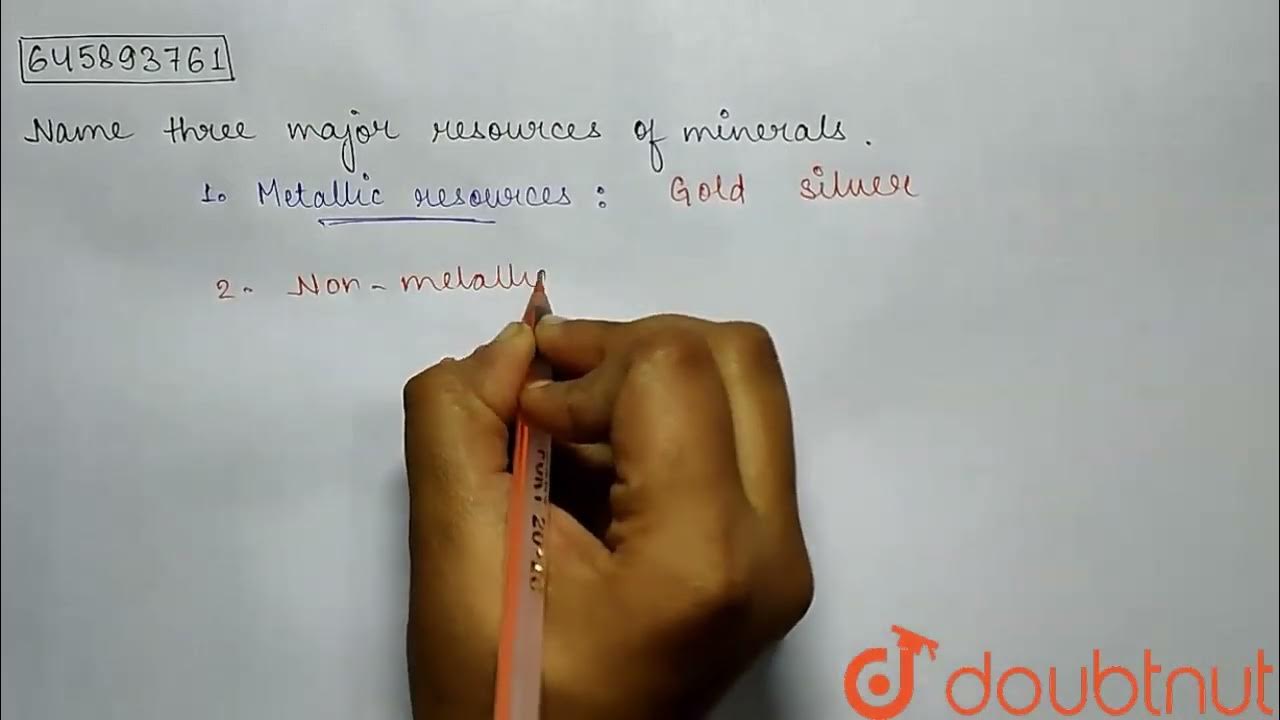 645893761
Name three major resources of minerals.
1. Metallic resources : Gold silver
2. Non-metalli
doubtnut